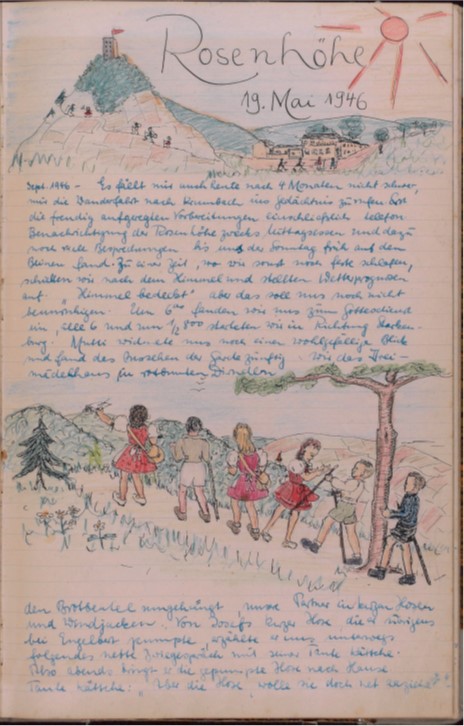 Rosenhöhe
19. Mai 1946
Sept. 1946 – Es fällt mir auch heute nach 4 Monaten nicht schwer,
mir die Wanderfahrt nach ins Gedächtnis zu rufen.
die freudig aufgeregten Vorbereitungen einschließlich telefon.
Benachrichtigung der Rosenhöhe zwecks Mittagessen und dazu
noch viele Besprechungen bis uns der Sonntag früh auf den
Beinen fand. Zu einer Zeit, wo wir sonst noch fest schlafen,
schauten wir nach dem Himmel und stellten Wetterprognosen
auf. „Himmel bedeckt" aber das soll uns noch nicht
beunruhigen. Um 6 fanden wir uns zum Gottesdienst
ein, alle 6 und um 1/2 800 starteten wir in Richtung
burg. Mutti uns noch einen wohlgefälligen Blick
und fand das Aussehen der Garde zünftig. Wir das Drei-
mäderlhaus in Dirndln
den Brotbeutel umgehängt, unsre Partner in kurzen Hosen
und Windjacken. Von Josefs kurzer Hose, die er übrigens
bei Engelbert gepumpt, erzählte er uns unterwegs
folgendes nette Zwiegespräch mit seiner Tante
Also abends bringt er die gepumpte Hose nach Hause
Tante : „Aber die Hose, wolle sie doch net anziehe?"